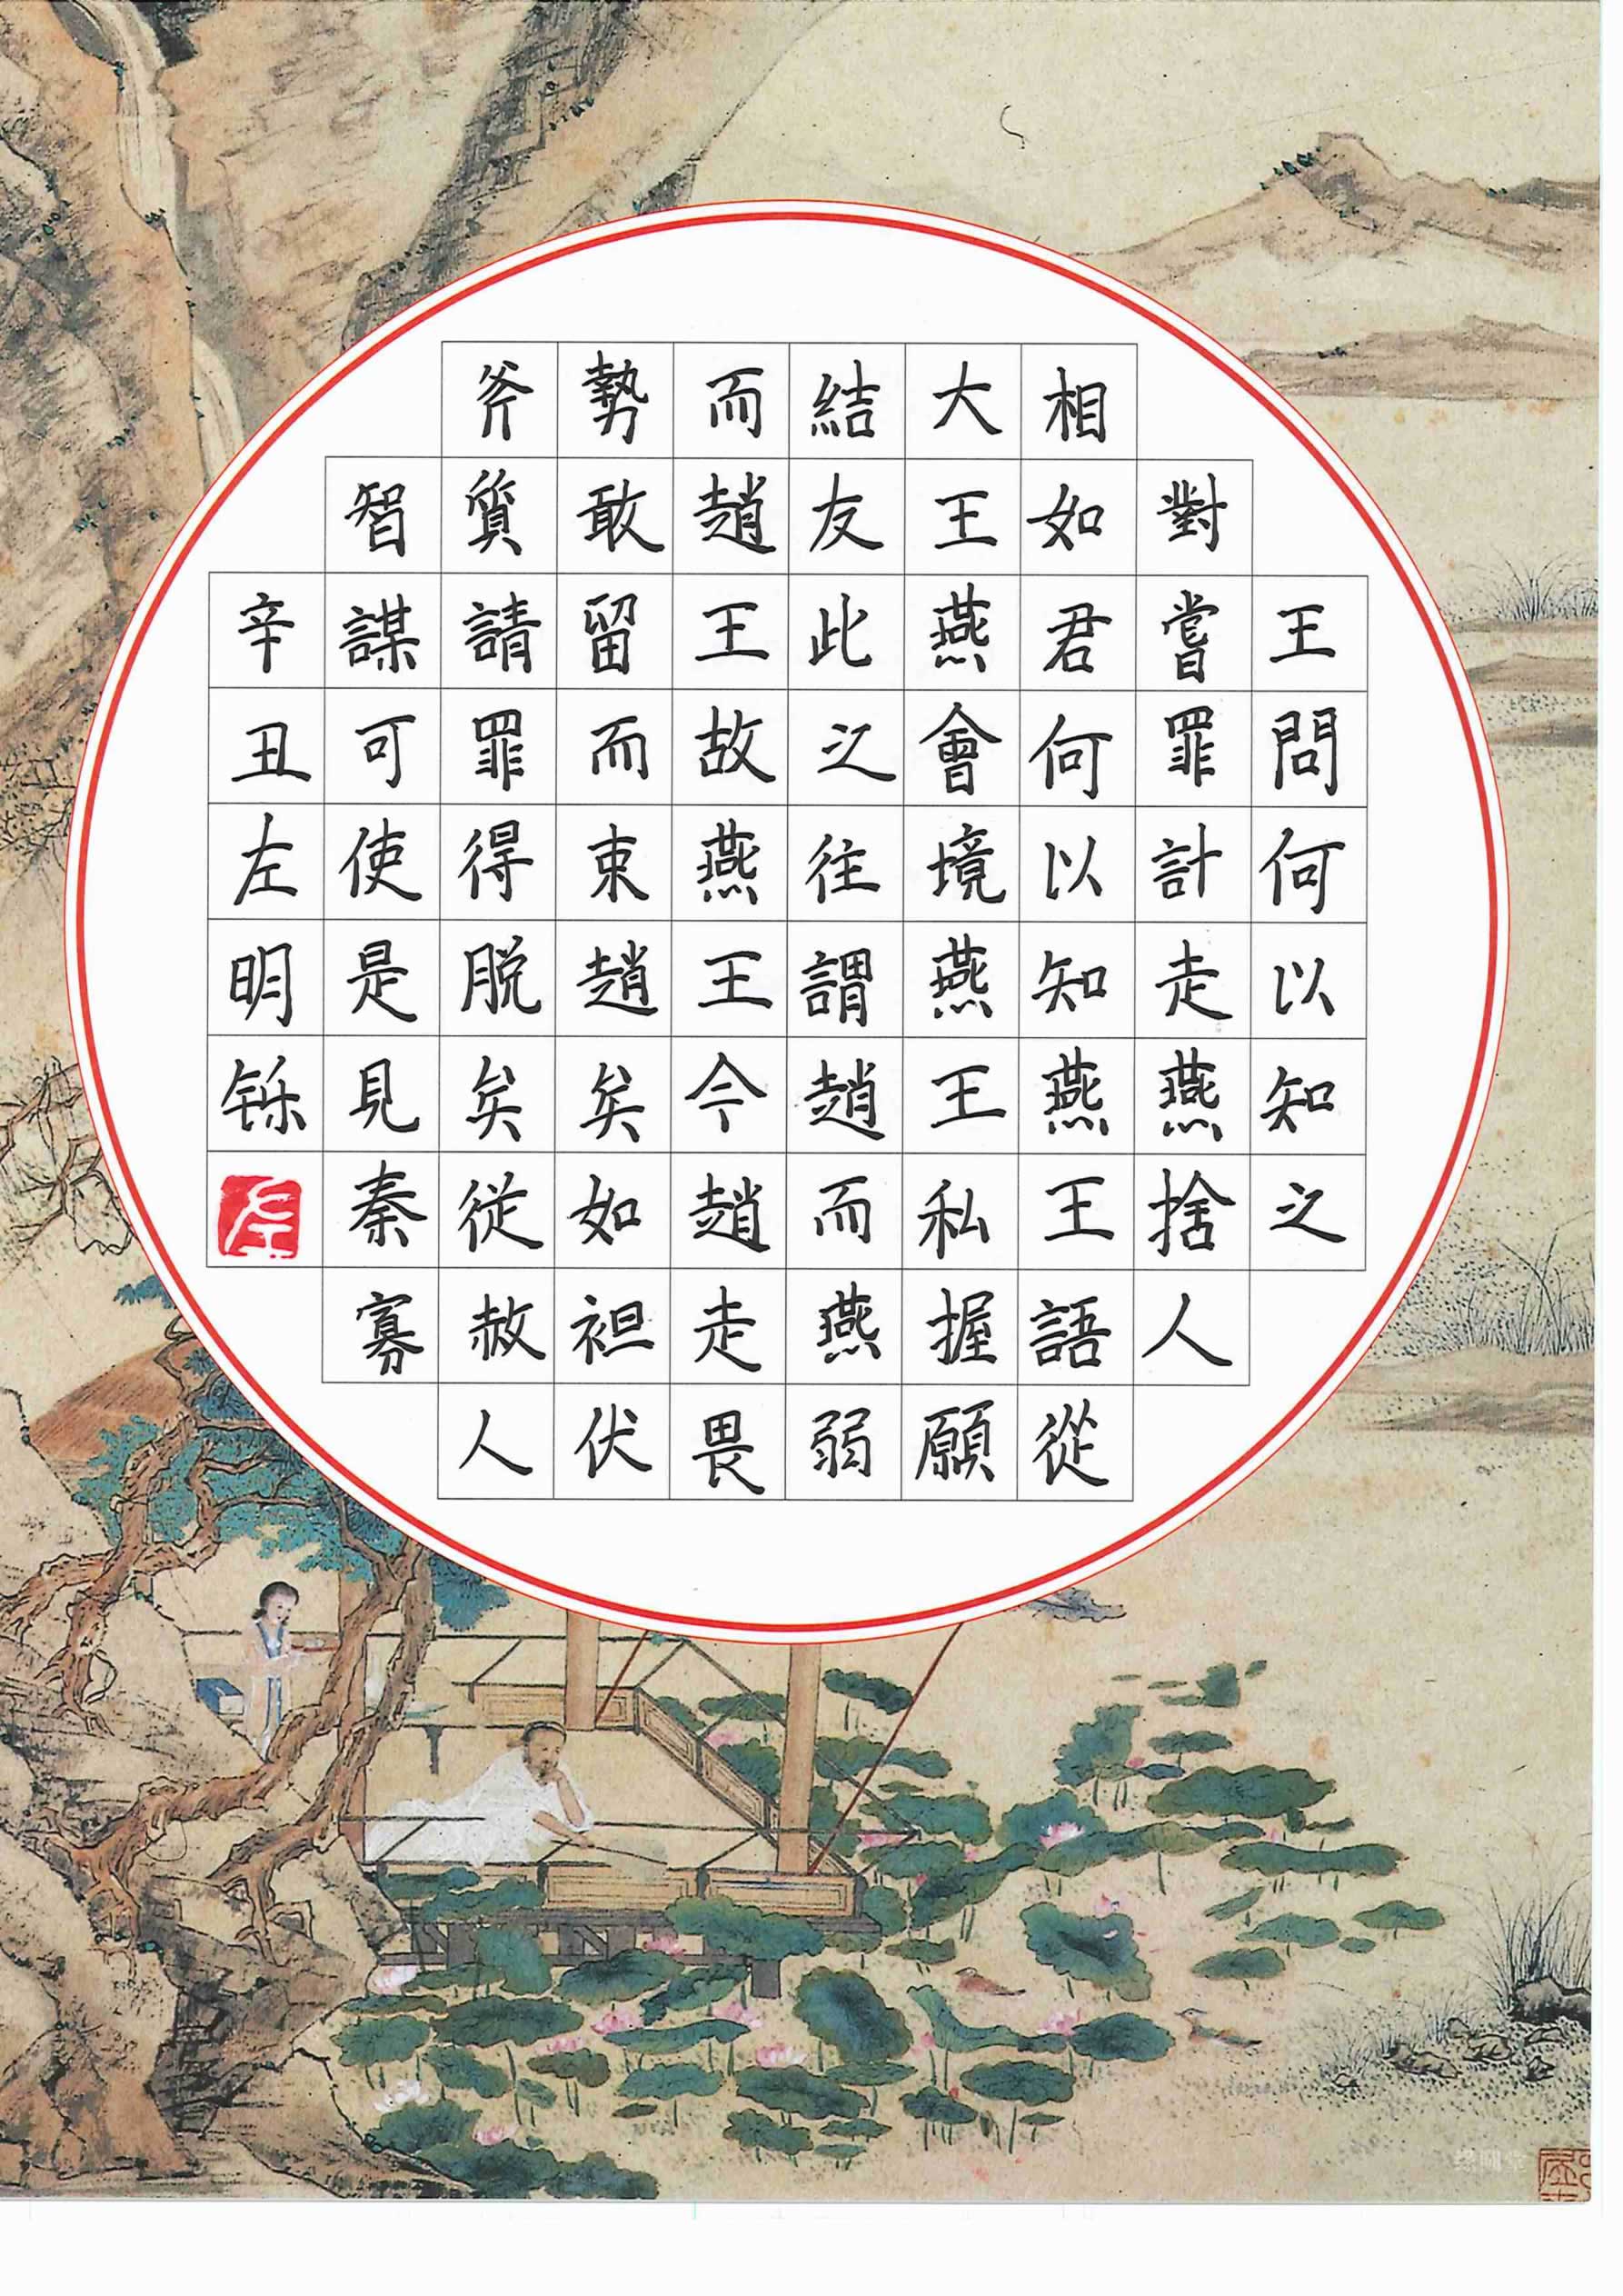 王問何以知之
對嘗罪計走燕捨人
相如君何以知燕王語從
大王燕會境燕王私握願
結友此之往謂趙而燕弱
而趙王故燕王今趙走畏
勢敢留而束趙矣如袒伏
斧質請罪得脱矣従赦人
智謀可使是見秦寡
辛丑左明铄
左